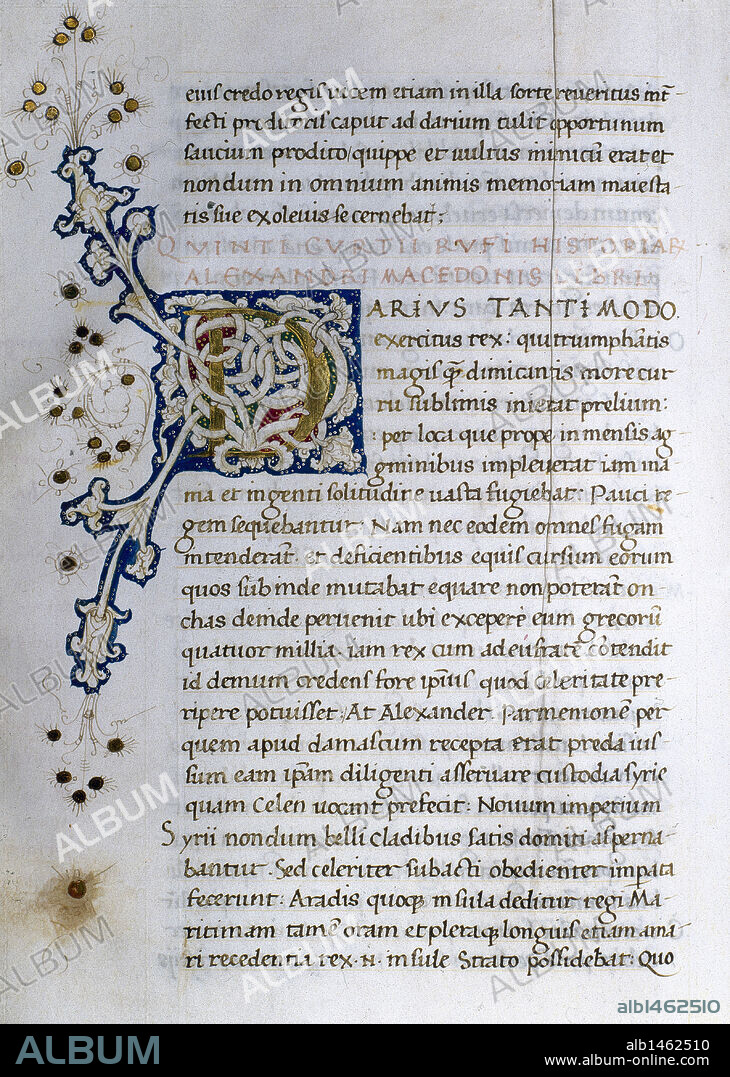 eius credo regis uocem etiam in illa sorte reueritus int̄
fecti pro caput ad darium tulit opportunum
saucium prodito/quippe et uultus inimicū erat et
nondum in omnium animis memoriam maiesta
tis sue exoleuisse cernebat;
QVINTI CVRTII RVFI HISTORIAR
ALEXANDRI MACEDONIS LIBRI
DARIVS TANTI MODO.
exercitus rex: qui triumphātis
magis q̄ dimicantis more cur
ru sublimis inierat prelium:
: per loca que prope inmensis ag
gminibus impleuerat iam ina
nia et ingenti solitudine uasta fugiebat: Pauci re
gem sequebantur. Nam nec eodem omnes fugam
intenderāt. et deficientibus equis cursum eorum
quos subinde mutabat equare non poterāt on
chas deinde peruenit ubi excepere eum grecorū
quatuor millia. iam rex cum ad eufratē cōtendit
id demum credens fore ipsius quod celeritate pre
ripere potuisset. At Alexander Parmenionē per
quem apud damascum recepta erat preda ius
sum eam ip̄am diligenti asseruare custodia syrie
quam Celen uocant prefecit: Nouum imperium
Syrii nondum belli cladibus satis domiti asperna
bantur. Sed celeriter subacti obedienter imp̄ata
fecerunt: Aradis quoq; insula deditur regi Ma
ritimam tam̄ oram et pleraq; longius etiam a ma
ri recedentia rex .N. insule Strato possidebat: Quo
alb1462510
ALBUM
alb1462510
www.album-online.com